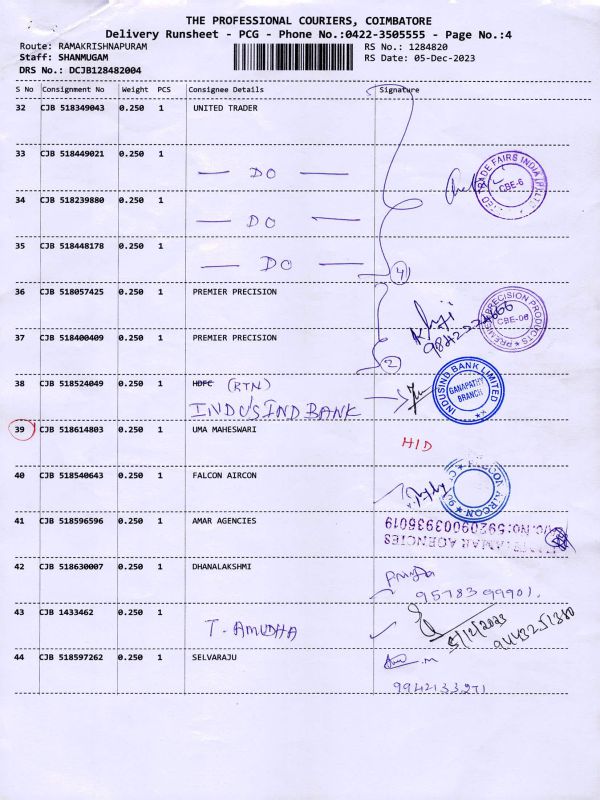 THE PROFESSIONAL COURIERS, COIMBATORE
Delivery Runsheet - PCG - Phone No.:0422-3505555 - Page No.:4
Route: RAMAKRISHNAPURAM
RS No.: 1284820
Staff: SHANMUGAM
RS Date: 05-Dec-2023
DRS No.: DCJB128482004
S No Consignment No Weight PCS Consignee Details Signature
32 CJB 518349043 0.250 1 UNITED TRADER
33 CJB 518449021 0.250 1
— DO —
TRADE FAIRS INDIA (P) LT
CBE-6
34 CJB 518239880 0.250 1
— DO —
35 CJB 518448178 0.250 1
— DO —
4
36 CJB 518057425 0.250 1 PREMIER PRECISION
PREMIER PRECISION PRODUCTS
CBE-06
37 CJB 518400409 0.250 1 PREMIER PRECISION
2
38 CJB 518524049 0.250 1 HDFC (RTN)
INDUSIND BANK
INDUSIND BANK LIMITED
GANAPATHY
BRANCH
39 CJB 518614803 0.250 1 UMA MAHESWARI
H/D
40 CJB 518540643 0.250 1 FALCON AIRCON
FALCON AIRCON
41 CJB 518596596 0.250 1 AMAR AGENCIES
AMAR AGENCIES
No:59209003936019
42 CJB 518630007 0.250 1 DHANALAKSHMI
9578399901.
43 CJB 1433462 0.250 1
T. AMUDHA
5/12/2023
9443251380
44 CJB 518597262 0.250 1 SELVARAJU
9942133271